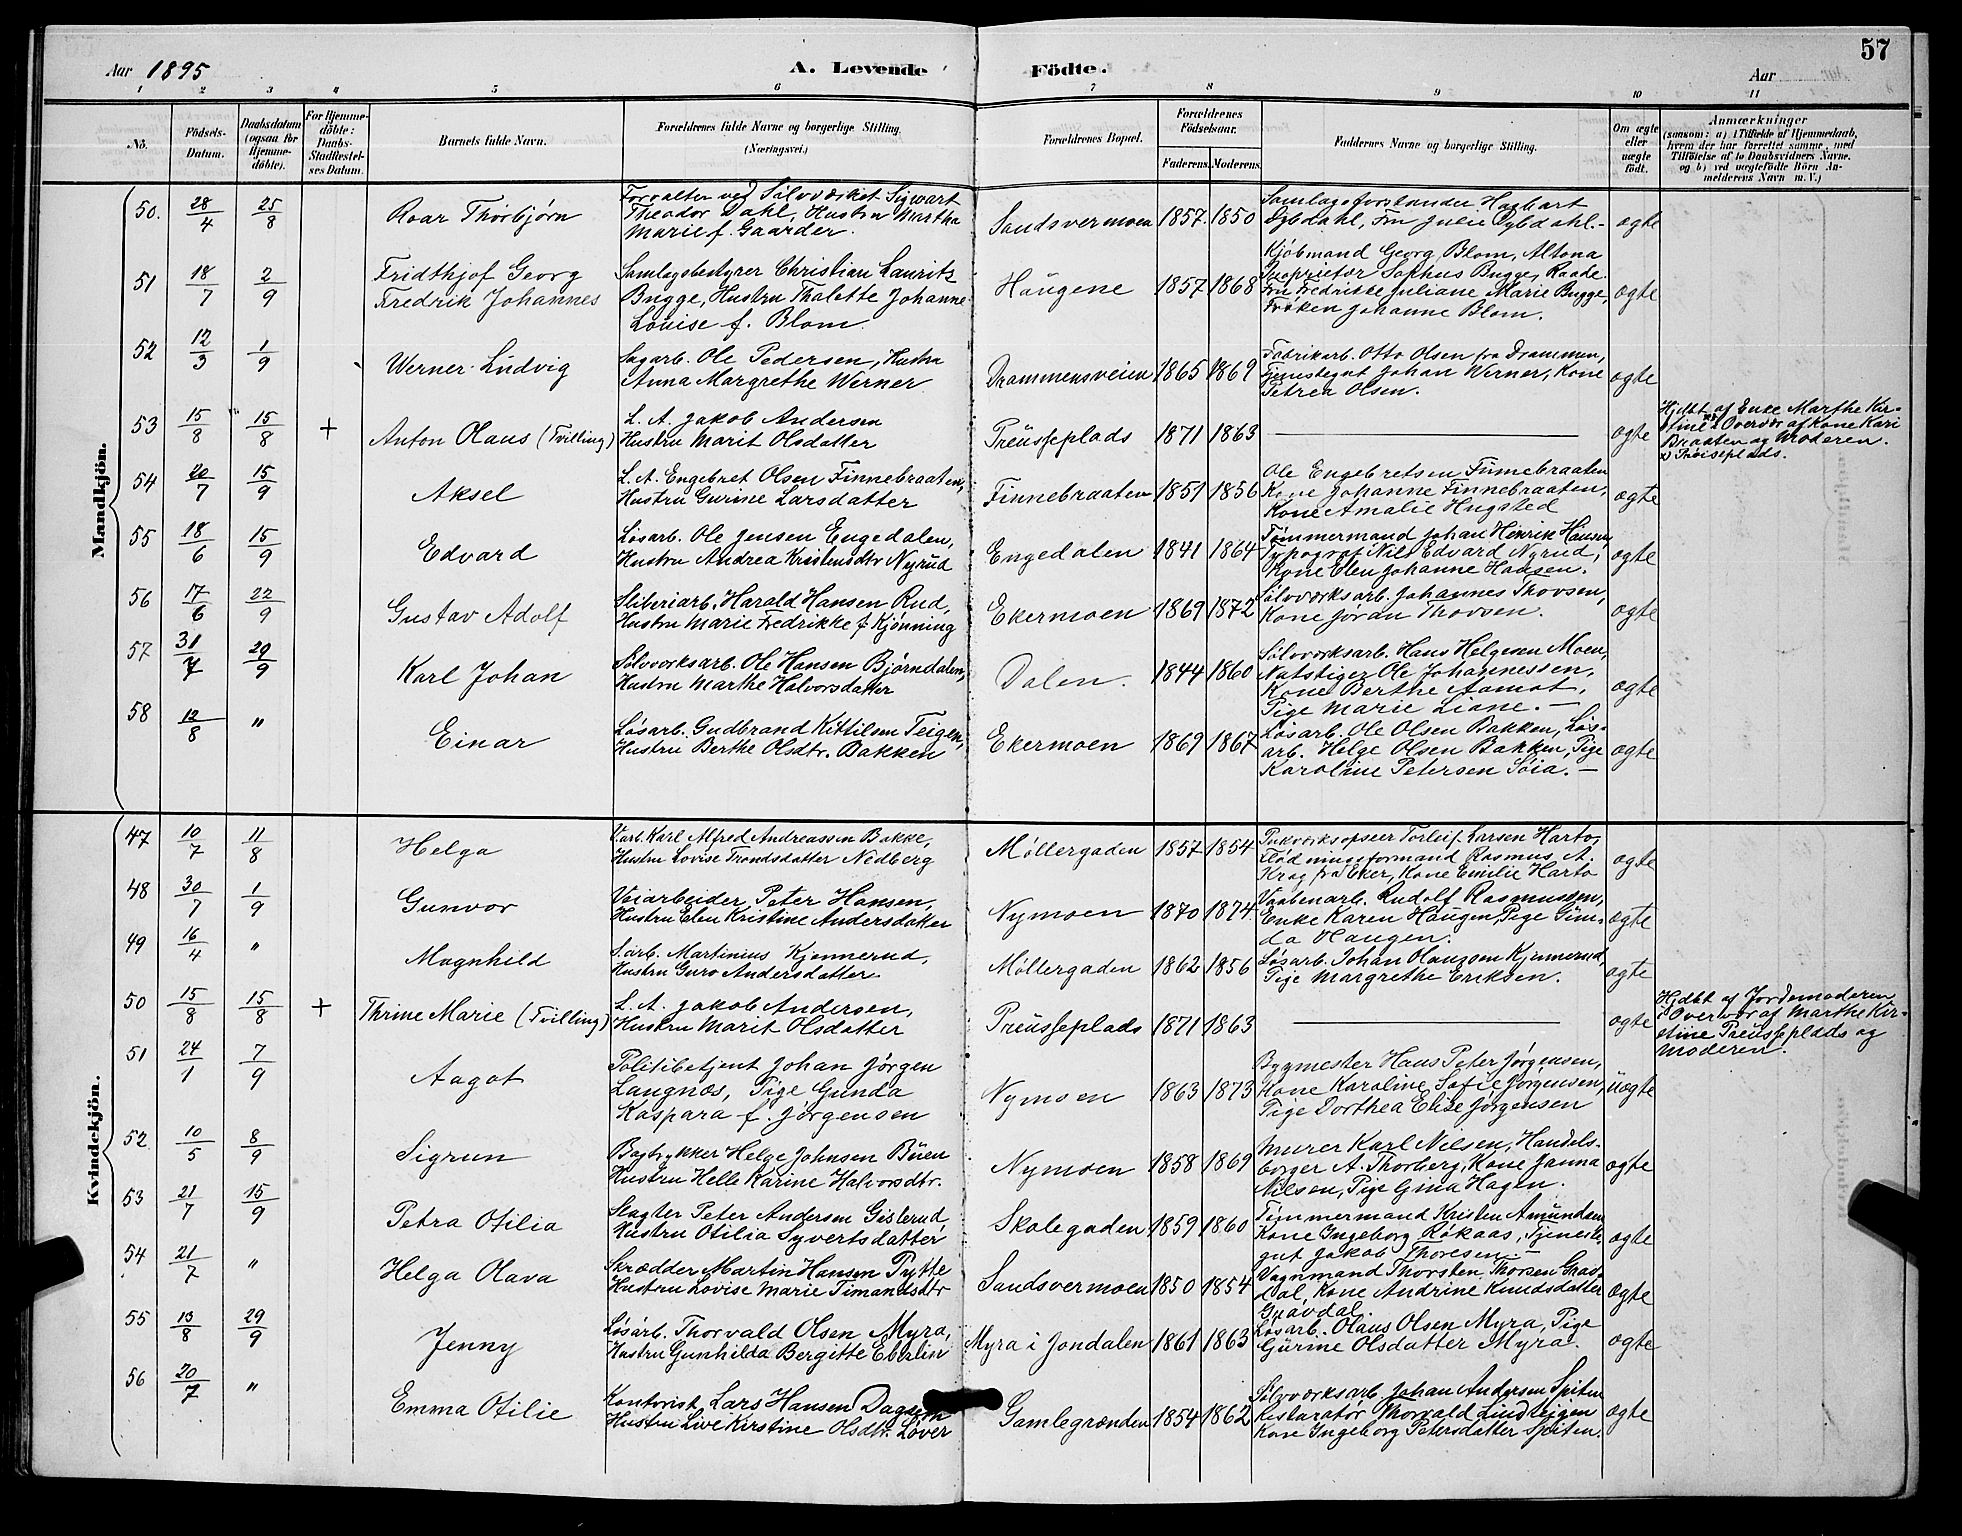 57
Aar 1895
A. Levende Födte.
Aar
1 2 3 4 5 6 7 8 9 10 11
No.
Födsels-Datum.
Daabsdatum (ogsaa for Hjemme-döbte).
For Hjemme-döbte: Daabs-Stadfæstel-ses Datum.
Barnets fulde Navn.
Forældrenes fulde Navne og borgerlige Stilling. (Næringsvei.)
Forældrenes Bopæl.
Forældrenes Födselsaar.
Faderens. Moderens.
Faddernes Navne og borgerlige Stilling.
Om ægte eller uægte födt.
Anmærkninger
(saasom: a) i Tilfælde af Hjemmedaab,
hvem der har forrettet samme, med
Tilföielse af to Daabsvidners Navne.
og b) ved uægtefödte Börn An-
melderens Navn m. V.)
Mandkjön.
50. 28/4 25/8 Roar Thorbjørn
Forvalter ved Sølvværket Sigwart
Theodor Dahl, Hustru Martha
Marie f. Gaarder.
Sandsvermoen 1857 1850
Samlagsforstander Hagbart
Dybdahl, Fru Julie Dybdahl.-
ægte
51 18/7 2/9 Fridthjof Georg
Fredrik Johannes
Samlagsbestyrer Christian Laurits
Bugge, Hustru Thalette Johanne
Louise f. Blom.
Haugene 1857 1868
Kjøbmand Georg Blom, Altona
Proprietær Sophus Bugge, Raade
Fru Fredrikke Juliane Marie Bugge,
Frøken Johanne Blom.
ægte
52 12/3 1/9 Werner Ludvig
Sagarb. Ole Pedersen, Hustru
Anna Margrethe Werner
Drammensveien 1865 1869
Fabrikarb. Otto Olsen fra Drammen,
Tjenestegut Johan Werner, Kone
Petrea Olsen.
ægte
53 15/8 15/8 + Anton Olaus (Tvilling)
L. A. Jakob Andersen
Hustru Marit Olsdatter
Preusseplads 1871 1863 —
ægte
Hjdbt af Enke Marthe Kir-
stine x) Overvær af Kone Kari
Braaten og Moderen.
x) Prøiseplads.
54 20/7 15/9 Aksel
L. A. Engebret Olsen Finnebraaten,
Hustru Gurine Larsdatter
Finnebraaten 1851 1856
Ole Engebretsen Finnebraaten
Kone Johanne Finnebraaten,
Kone Amalie Hugsted
ægte
55 18/6 15/9 Edvard
Løsarb. Ole Jensen Engedalen,
Hustru Andrea Kristensdtr Nyrud
Engedalen 1841 1864
Tømmermand Johan Henrik Hansen,
Typograf Nils Edvard Nyrud,
Kone Elen Johanne Hansen.
ægte
56 17/6 22/9 Gustav Adolf
Sliberiarb. Harald Hansen Rud,
Hustru Marie Fredrikke f. Kjønning
Ekermoen 1869 1872
Sølvværksarb. Johannes Thovsen,
Kone Jøran Thovsen.
ægte
57 31/7 29/9 Karl Johan
Sølvværksarb. Ole Hansen Bjørndalen,
Hustru Marthe Halvorsdatter
Dalen. 1844 1860
Sølvværksarb. Hans Helgesen Moen,
Natstiger Ole Johannessen,
Kone Berthe Aamot,
Pige Marie Liane.—
ægte
58 12/8 " Einar
Løsarb. Gudbrand Kittilsen Teigen,
Hustru Berthe Olsdtr. Bakken
Ekermoen 1869 1867
Løsarb. Ole Olsen Bakken, Løs-
arb. Helge Olsen Bakken, Pige
Karoline Petersen Søia.—
ægte
Kvindekjön.
47 10/7 11/8 Helga
Varb. Karl Alfred Andreassen Bakke,
Hustru Lovise Trondsdatter Nedberg
Møllergaden 1857 1854
Pukværksopseer Torleif Larsen Harto,
Flødningsformand Rasmus A.
Krag fra Eker, Kone Emilie Harto
ægte
48 30/7 1/9 Gunvor
Veiarbeider Peter Hansen,
Hustru Elen Kristine Andersdatter
Nymoen 1870 1874
Vaabenarb. Rudolf Rasmussen,
Enke Karen Haugen, Pige Gun-
da Haugen.
ægte
49 16/4 " Magnhild
S.arb. Martinius Kjennerud,
Hustru Guro Andersdatter.
Møllergaden 1862 1856
Løsarb. Johan Olaussen Kjennerud,
Pige Margrethe Eriksen.
ægte
50 15/8 15/8 + Thrine Marie (Tvilling)
L. A. Jakob Andersen,
Hustru Marit Olsdatter
Preusseplads 1871 1863 —
ægte
Hjdbt af Jordemoderen
i Overvær af Marthe Kir-
stine Preusseplads og
Moderen.
51 24/1 7/9 Aagot
Politibetjent Johan Jørgen
Langnæs, Pige Gunda
Kaspara f. Jørgensen
Nymoen 1863 1873
Bygmester Hans Peter Jørgensen,
Kone Karoline Sofie Jørgensen,
Pige Dorthea Elise Jørgensen
uægte
52 10/5 8/9 Sigrun
Bogtrykker Helge Johnsen Buen
Hustru Helle Karine Halvorsdtr.
Nymoen 1858 1869
Murer Karl Nilsen, Handels-
borger A. Thorberg, Kone Janna
Nilsen, Pige Gina Hagen.
ægte
53 21/7 15/9 Petra Otilia
Slagter Peter Andersen Gislerud,
Hustru Otilia Syvertsdatter
Skolegaden 1859 1860
Tømmermand Kristen Amundsen,
Kone Ingeborg Røkaas, Tjeneste-
gut Jakob Thoresen.—
ægte
54 21/7 " Helga Olava
Skrædder Martin Hansen Pytte
Hustru Lovise Marie Timandsdtr
Sandsvermoen 1850 1854
Vognmand Thorsten Thorsen Grav-
dal, Kone Andrine Knudsdatter
Gravdal.
ægte
55 13/8 29/9 Jenny
Løsarb. Thorvald Olsen Myra,
Hustru Gunhilda Bergitte Eberlin
Myra i Jondalen 1861 1863
Løsarb. Olaus Olsen Myra, Pige
Gurine Olsdatter Myra.
ægte
56 20/7 " Emma Otilie
Kontorist Lars Hansen
Hustru Live Kirstine Olsdtr. Løver
Gamlegrænden 1854 1862
Sølvværksarb. Johan Andersen Spiten
Restauratør Thorvald Lindteigen
Kone Ingeborg Petersdatter Spiten.
ægte